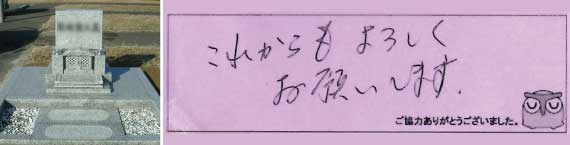 これからもよろしく
お願いします.
ご協力ありがとうございました。